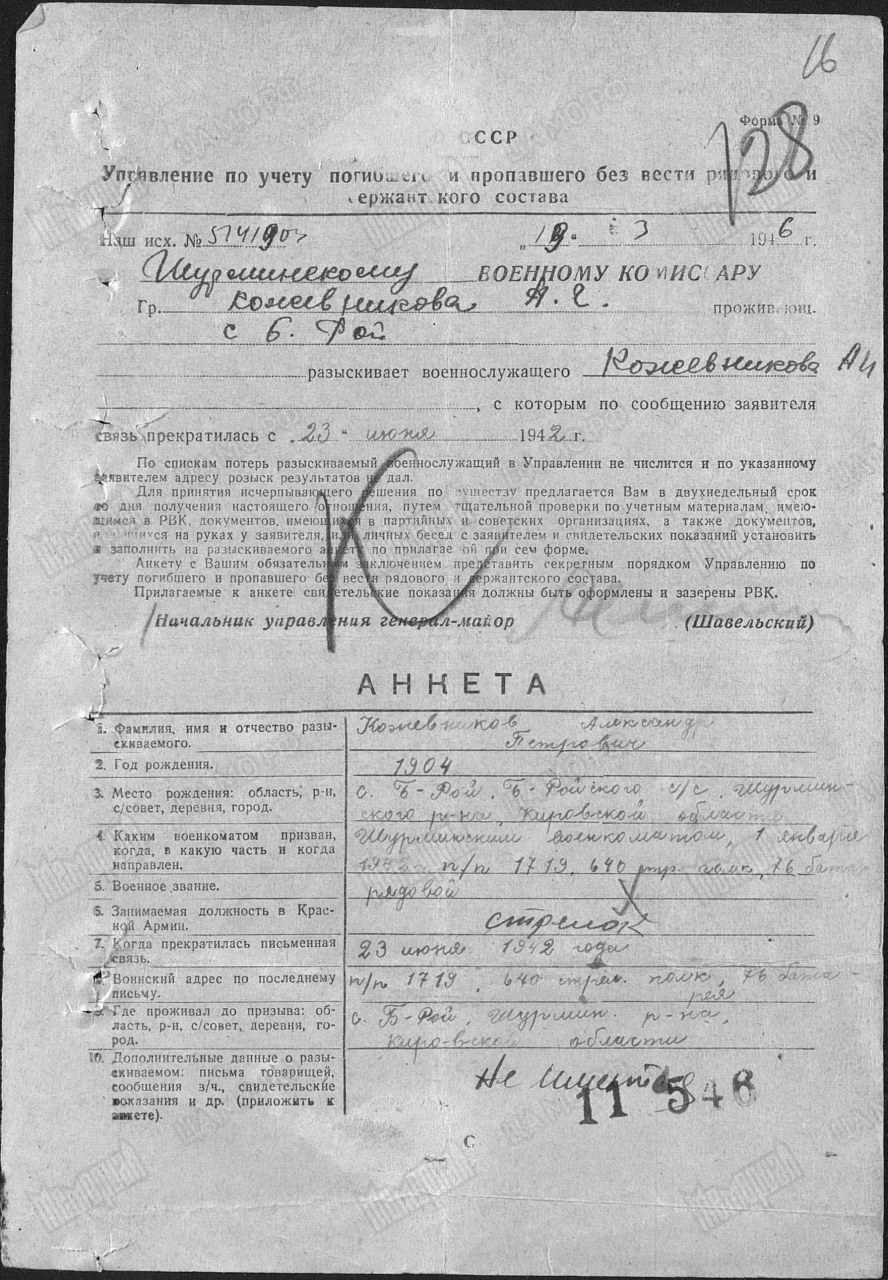 16
Форма № 9
128
СССР
Управление по учету погибшего и пропавшего без вести рядового и
сержантского состава
Наш исх. № „19“ 3 1946 г.
Шурминскому ВОЕННОМУ КОМИССАРУ
Гр. Кожевникова А. Е. проживающ.
с Б. Рой
разыскивает военнослужащего Кожевникова
, с которым по сообщению заявителя
связь прекратилась с „23“ июня 1942 г.
По спискам потерь разыскиваемый военнослужащий в Управлении не числится и по указанному
заявителем адресу розыск результатов не дал.
Для принятия исчерпывающего решения по существу предлагается Вам в двухнедельный срок
со дня получения настоящего отношения, путем тщательной проверки по учетным материалам, имею-
щимся в РВК, документов, имеющихся в партийных и советских организациях, а также документов,
имеющихся на руках у заявителя, или личных бесед с заявителем и свидетельских показаний установить
и заполнить на разыскиваемого анкету по прилагаемой при сем форме.
Анкету с Вашим обязательным заключением представить секретным порядком Управлению по
учету погибшего и пропавшего без вести рядового и сержантского состава.
Прилагаемые к анкете свидетельские показания должны быть оформлены и заверены РВК.
К
Начальник управления генерал-майор (Шавельский)
АНКЕТА
1. Фамилия, имя и отчество разы-
скиваемого.
Кожевников Александр
Петрович
2. Год рождения.
1904
3. Место рождения: область, р-н,
с/совет, деревня, город.
с. Б-Рой, Б-Ройского с/с, Шурмин-
ского р-на, Кировской области
4. Каким военкоматом призван,
когда, в какую часть и когда
направлен.
Шурминским военкоматом, 1 января
1942 п/п 1719, 640 стр. полк, 76 батар
5. Военное звание.
рядовой
6. Занимаемая должность в Крас-
ной Армии.
стрелок
7. Когда прекратилась письменная
связь.
23 июня 1942 года
8. Воинский адрес по последнему
письму.
п/п 1719, 640 стрел. полк, 76 бата-
рея
9. Где проживал до призыва: об-
ласть, р-н, с/совет, деревня, го-
род.
с. Б-Рой, Шурмин. р-на,
Кировской области
10. Дополнительные данные о разы-
скиваемом: письма товарищей,
сообщения з/ч., свидетельские
показания и др. (приложить к
анкете).
Не имеется
11 5 46
С